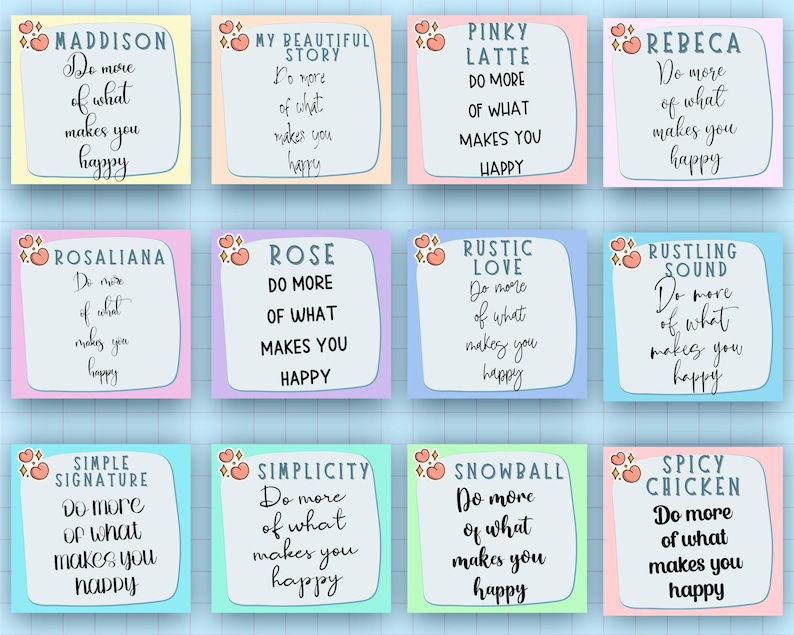 MADDISON
Do more
of what
makes you
happy
MY BEAUTIFUL
STORY
Do more
of what
makes you
happy
PINKY
LATTE
DO MORE
OF WHAT
MAKES YOU
HAPPY
REBECA
Do more
of what
makes you
happy
ROSALIANA
Do more
of what
makes you
happy
ROSE
DO MORE
OF WHAT
MAKES YOU
HAPPY
RUSTIC
LOVE
Do more
of what
makes you
happy
RUSTLING
SOUND
Do more
of what
makes you
happy
SIMPLE
SIGNATURE
DO MORE
OF WHAT
MAKES YOU
HAPPY
SIMPLICITY
Do more
of what
makes you
happy
SNOWBALL
Do more
of what
makes you
happy
SPICY
CHICKEN
Do more
of what
makes you
happy